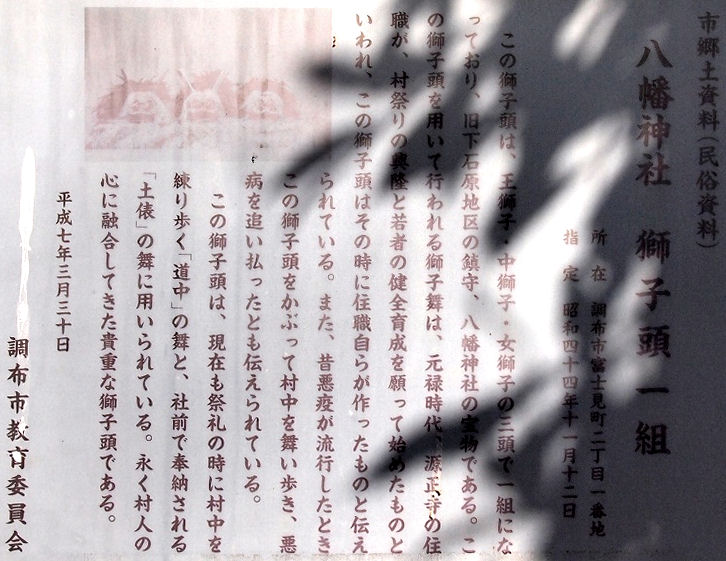 市郷土資料（民俗資料）
八幡神社　獅子頭一組
所　在　調布市富士見町二丁目一番地
指　定　昭和四十四年十一月十二日
この獅子頭は、王獅子・中獅子・女獅子の三頭で一組にな
っており、旧下石原地区の鎮守、八幡神社の宝物である。こ
の獅子頭を用いて行われる獅子舞は、元禄時代、源正寺の住
職が、村祭りの興隆と若者の健全育成を願って始めたものと
いわれ、この獅子頭はその時に住職自らが作ったものと伝え
られている。また、昔悪疫が流行したとき
この獅子頭をかぶって村中を舞い歩き、悪
病を追い払ったとも伝えられている。
この獅子頭は、現在も祭礼の時に村中を
練り歩く「道中」の舞と、社前で奉納される
「土俵」の舞に用いられている。永く村人の
心に融合してきた貴重な獅子頭である。
平成七年三月三十日
調布市教育委員会